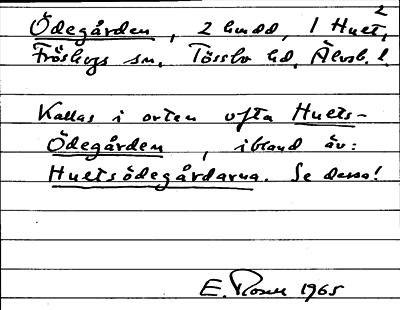 Ödegården, 2 hmdd, 1 Huet,²
Fröskogs sn. Tössbo hd. Älvsb. l.
Kallas i orten ofta Huets-
Ödegården, ibland äv:
Huetsödegårdarna. Se dessa!
E. Rosen 1965